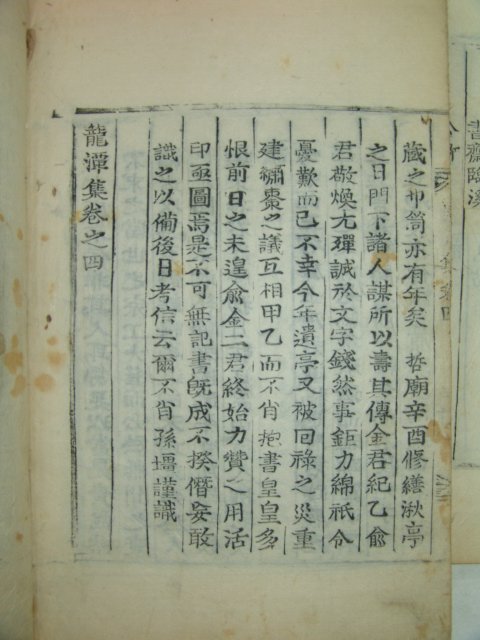 藏之巾笥亦有年矣 哲廟辛酉修繕湫亭
之日門下諸人謀所以壽其傳金君紀乙兪
君敬煥尢殫誠於文字錢然事鉅力綿祇令
憂歎而已不幸今年遺亭又被回祿之災重
建繡棗之議互相甲乙而不肖抱書皇皇多
恨前日之未遑兪金二君終始力贊之用活
印亟圖焉是不可無記書旣成不揆僭妄敢
識之以備後日考信云爾不肖孫墰謹識
龍潭集卷之四